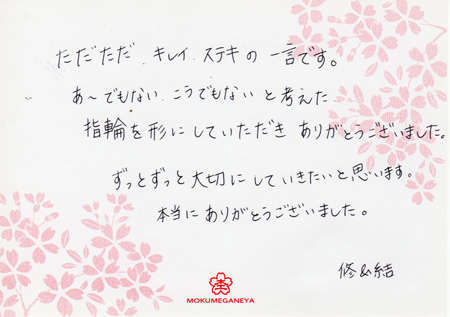 ただただ、キレイ、ステキの一言です。
あ～でもない、こうでもないと考えた
指輪を形にしていただきありがとうございました。
ずっとずっと大切にしていきたいと思います。
本当にありがとうございました。
修&結
MOKUMEGANEYA